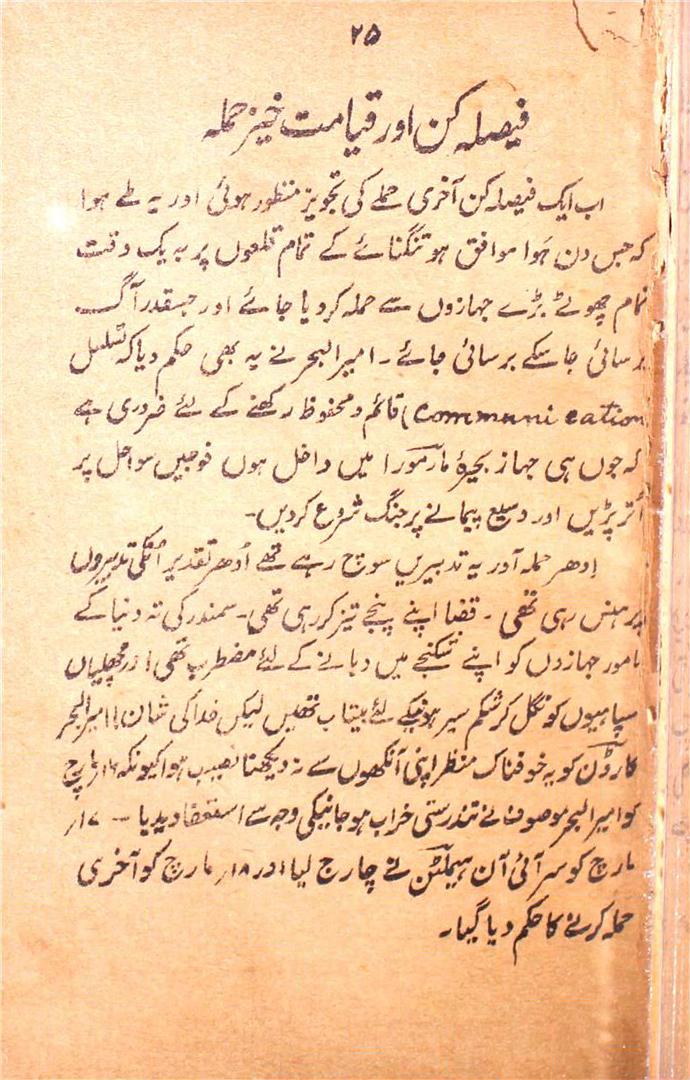 ۲۵
فیصلہ کن اور قیامت خیز حملہ
اب ایک فیصلہ کن آخری حملے کی تجویز منظور ہوئی اور یہ طے ہوا
کہ جس دن ہَوا موافق ہو تنگنائے کے تمام قلعوں پر بہ یک وقت
تمام چھوٹے بڑے جہازوں سے حملہ کردیا جائے اور جسقدر آگ
برسائی جاسکے برسائی جائے۔ امیرالبحر نے یہ بھی حکم دیا کہ تسلسل
(communication) قائم و محفوظ رکھنے کے لئے ضروری ہے
کہ جوں ہی جہاز بحیرۂ مارمورا میں داخل ہوں فوجیں سواحل پر
اُتر پڑیں اور وسیع پیمانے پر جنگ شروع کردیں۔
اِدھر حملہ آور یہ تدبیریں سوچ رہے تھے اُدھر تقدیر اُنکی تدبیروں
پر ہنس رہی تھی ۔ قضا اپنے پنجے تیز کر رہی تھی۔ سمندر کی تہ دنیا کے
نامور جہازوں کو اپنے شکنجے میں دبانے کے لئے مضطرب تھی اور مچھلیاں
سپاہیوں کو نگل کر شکم سیر ہونیکے لئے بیتاب تھیں لیکن خدا کی شان! امیرالبحر
کارڈن کو یہ خوفناک منظر اپنی آنکھوں سے نہ دیکھنا نصیب ہوا کیونکہ ۱۶ر مارچ
کو امیرالبحر موصوف نے تندرستی خراب ہوجانیکی وجہ سے استعفا دیدیا ۔ ۱۷ر
مارچ کو سر آئی آن ہیملٹن نے چارج لیا اور ۱۸ر مارچ کو آخری
حملہ کرنے کا حکم دیا گیا۔